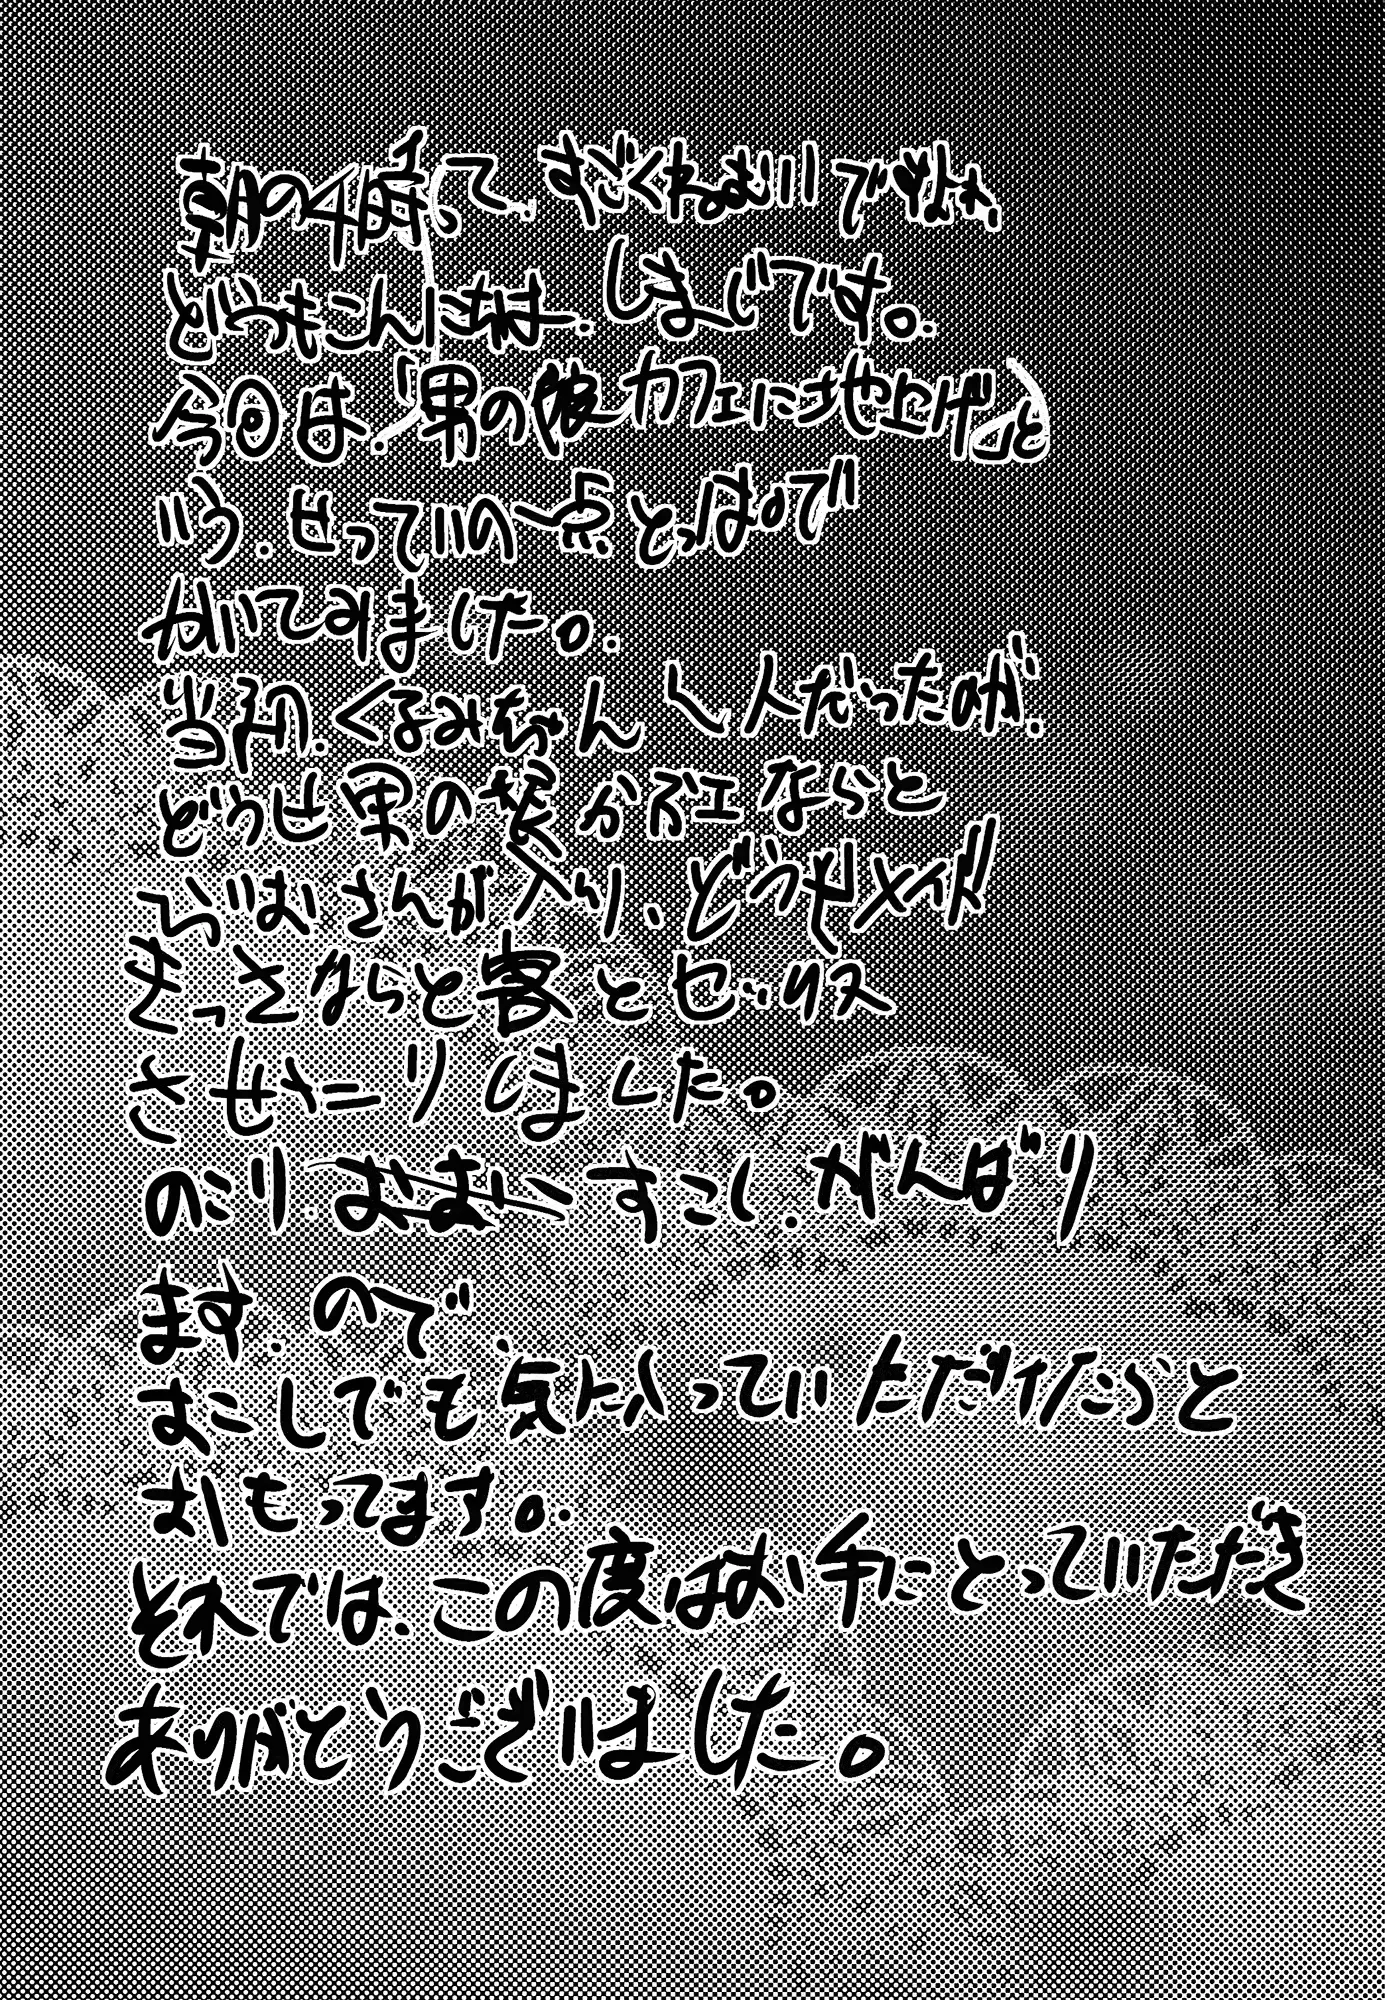 朝の4時って、すごくねむいですよね、
どうもこんにちは、しまじです。
今回は、「男の娘カフェに地上げ」と
いう、せっていの一点とっぱで
かいてみました。
当初、くるみちゃん1人だったのが、
どうせ男の娘かふェならと
らいおさんが入り、どうせメイド
きっさならと客とセックス
させたりしました。
のこり すこし、がんばり
ます、ので、
すこしでも気に入っていただけたらと
おもってます。
それでは、この度はお手にとっていただき
ありがとうございました。